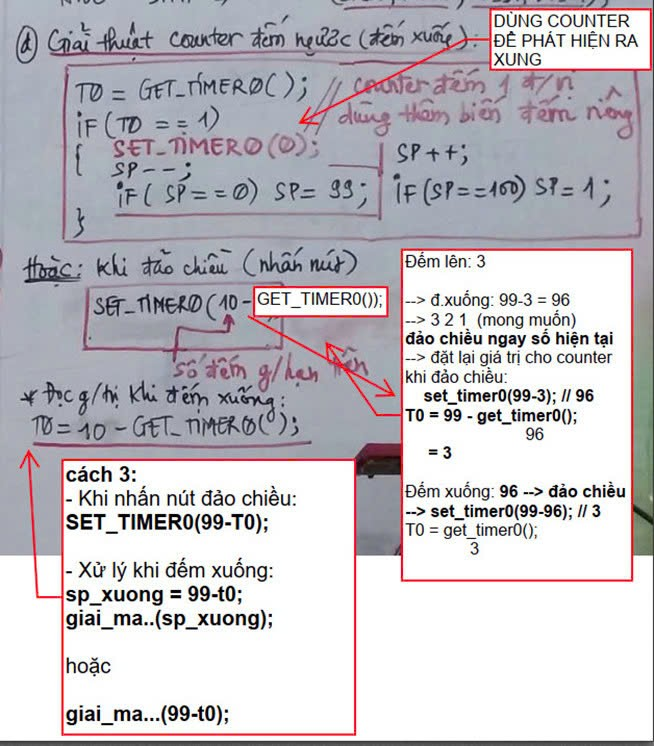 DÙNG COUNTER
ĐỂ PHÁT HIỆN RA
XUNG
(d) Giải thuật counter đếm ngược (đếm xuống):
T0 = GET_TIMER0(); // counter đếm 1 đ/vị
IF(T0 == 1) // dùng thêm biến đếm riêng
{ SET_TIMER0(0);
SP--; SP++;
IF(SP==0) SP=99; IF(SP==100) SP=1;
}
Hoặc: Khi đảo chiều (nhấn nút)
SET_TIMER0(10- GET_TIMER0());
số đếm g/hạn trên
* Đọc g/trị khi đếm xuống:
T0 = 10 - GET_TIMER0();
Đếm lên: 3
--> đ.xuống: 99-3 = 96
--> 3 2 1 (mong muốn)
đảo chiều ngay số hiện tại
--> đặt lại giá trị cho counter
khi đảo chiều:
set_timer0(99-3); // 96
T0 = 99 - get_timer0();
96
= 3
Đếm xuống: 96 --> đảo chiều
--> set_timer0(99-96); // 3
T0 = get_timer0();
3
cách 3:
- Khi nhấn nút đảo chiều:
SET_TIMER0(99-T0);
- Xử lý khi đếm xuống:
sp_xuong = 99-t0;
giai_ma..(sp_xuong);
hoặc
giai_ma...(99-t0);